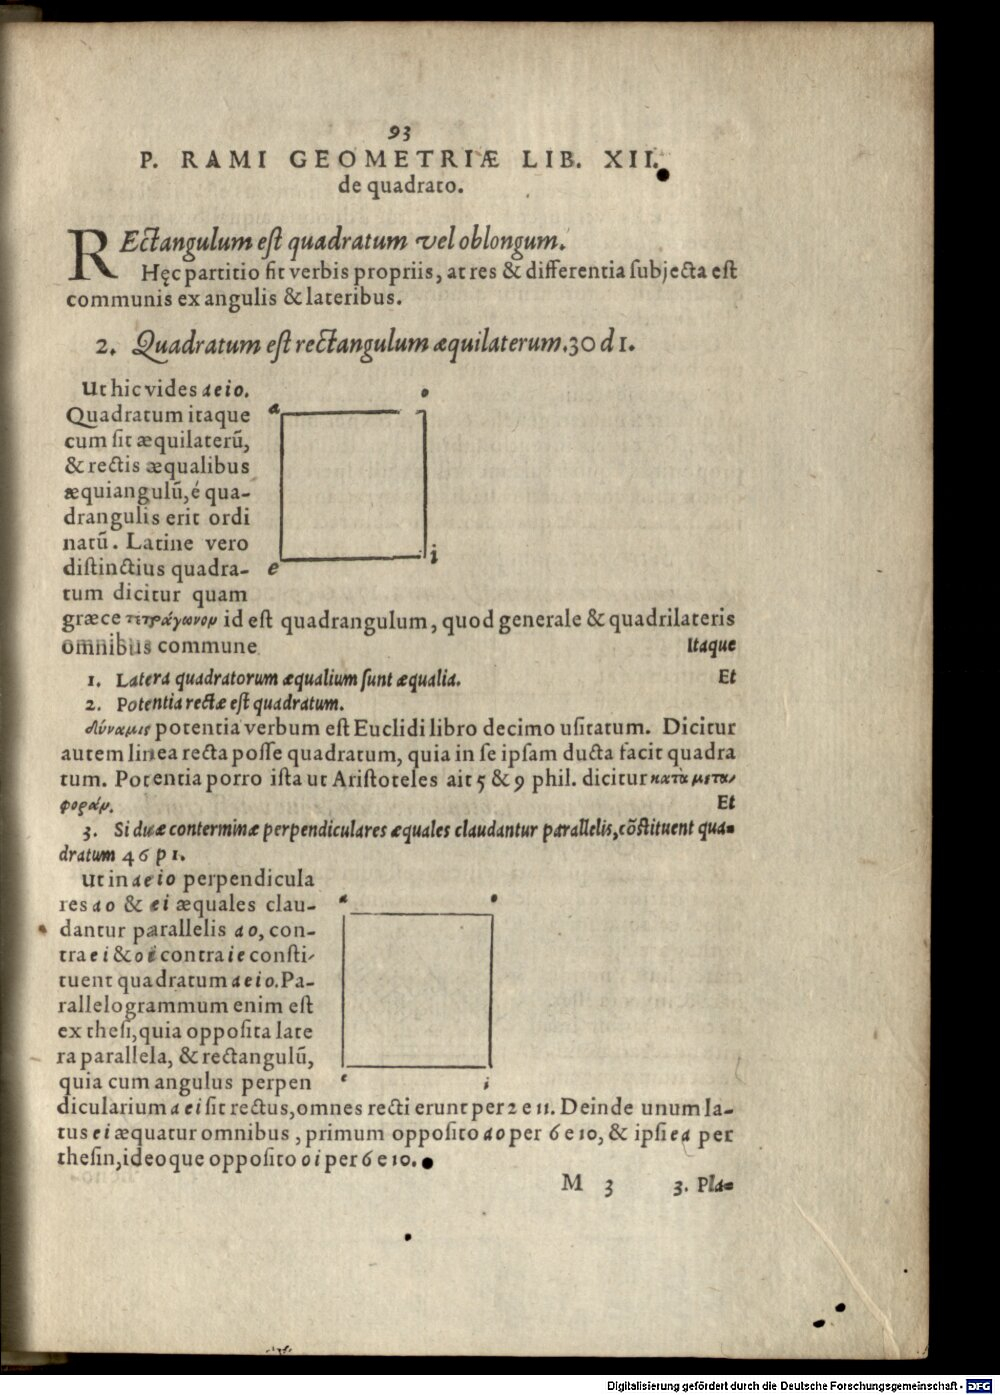 93
P. RAMI GEOMETRIÆ LIB. XII.
de quadrato.
REctangulum est quadratum vel oblongum.
Hęc partitio fit verbis propriis, at res & differentia subjecta est
communis ex angulis & lateribus.
2. Quadratum est rectangulum æquilaterum. 30 d 1.
Ut hic vides aeio.
Quadratum itaque
cum sit æquilaterũ,
& rectis æqualibus
æquiangulũ, é qua-
drangulis erit ordi
natũ. Latine vero
distinctius quadra-
tum dicitur quam
a
o
e
i
græce τετράγωνον id est quadrangulum, quod generale & quadrilateris
omnibus commune Itaque
1. Latera quadratorum æqualium sunt æqualia. Et
2. Potentia rectæ est quadratum.
δύναμις potentia verbum est Euclidi libro decimo usitatum. Dicitur
autem linea recta posse quadratum, quia in se ipsam ducta facit quadra
tum. Potentia porro ista ut Aristoteles ait 5 & 9 phil. dicitur κατὰ μετα-
φοράν. Et
3. Si duæ conterminæ perpendiculares æquales claudantur parallelis, cõstituent qua-
dratum 46 p 1.
Ut in aeio perpendicula
res ao & ei æquales clau-
dantur parallelis ao, con-
tra ei & oi contra ie consti-
tuent quadratum aeio. Pa-
rallelogrammum enim est
ex thesi, quia opposita late
ra parallela, & rectangulũ,
quia cum angulus perpen
a
o
e
i
dicularium aei sit rectus, omnes recti erunt per 2 e 11. Deinde unum la-
tus ei æquatur omnibus, primum opposito ao per 6 e 10, & ipsi ea per
thesin, ideoque opposito oi per 6 e 10.
M 3 3. Pla-
Digitalisierung gefördert durch die Deutsche Forschungsgemeinschaft - DFG